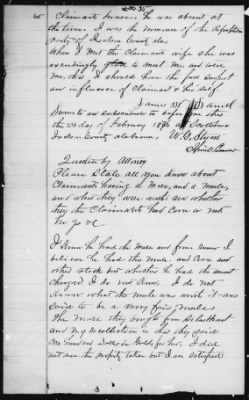 Claimants house. he was absent at
the time. I was the nominee of the
party of
When I met the Claimants wife she was
exceedingly glad to meet me and assure
me that I should have the full support
and influence of Claimant & her self
James M
Sworn to and subscribed to before me this
the 23 day of February 1876 at
County Alabama.
Special Commr
Question by Attorney
Please State all you know about
Claimants having a Mare, and a Mule
and what they were worth and whether
they the Claimants had Corn or not
I Know he had the Mare and from rumor I
believe he had the Mule and Corn and
other stock but whether he had the amount
charged I do not Know, I do not
Know what the Mule was worth it was
said to be a very fine mule
The Mare they bought from
and my recollection is that they paid
One hundred Dollars in Gold for her. I did
not see the property taken but I am satisfied